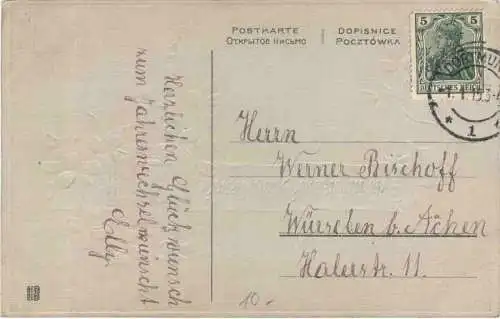 POSTKARTE
ОТКРЫТОЕ ПИСЬМО
DOPISNICE
POCZTÓWKA
5 5
DEUTSCHES REICH
DORTMUN
* 1
Herzlichen Glückwunsch
zum Jahreswechsel wünscht
Elly.
Herrn
Werner Bischoff
Würselen b. Achen
Halerstr. 11.
10.-